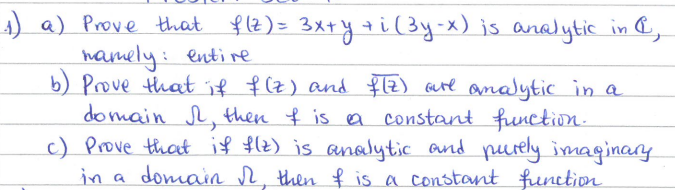 1) a) Prove that f(z) = 3x+y + i(3y-x) is analytic in ℂ,
namely: entire
b) Prove that if f(z) and \overline{f(z)} are analytic in a
domain Ω, then f is a constant function.
c) Prove that if f(z) is analytic and purely imaginary
in a domain Ω, then f is a constant function